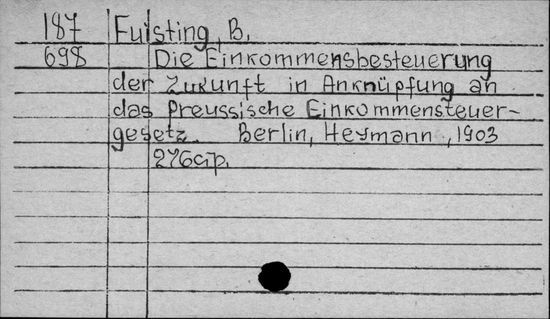 187 Fuisting, B.
698 Die Einkommensbesteuerung
der Zukunft in Anknüpfung an
das Preussische Einkommensteuer-
gesetz. Berlin, Heymann, 1903
276 c.